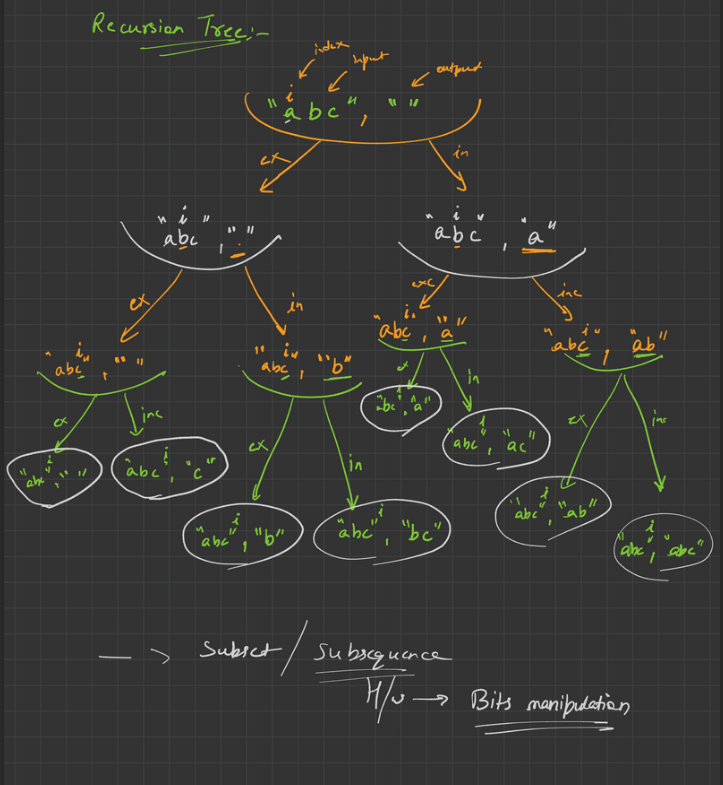 Recursion Tree:-
index
input
output
i
"abc", " "
ex
in
i
"abc", "."
i
"abc", "a"
ex
in
exc
inc
i
"abc", " "
i
"abc", "b"
i
"abc", "a"
i
"abc", "ab"
ex
inc
ex
in
ex
in
ex
inc
"abc", "a"
i
"abc", " "
i
"abc", "c"
i
"abc", "ac"
i
"abc", "b"
i
"abc", "bc"
i
"abc", "ab"
i
"abc", "abc"
—> Subset / Subsequence
H/w —> Bits manipulation